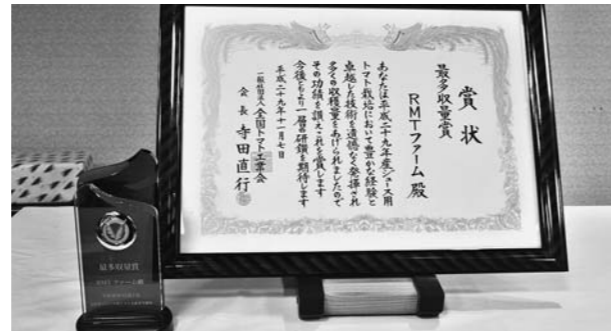 賞状
最多収量賞
RMTファーム殿
あなたは平成二十九年産ジュース用
トマト栽培において豊かな経験と
卓越した技術を遺憾なく発揮され
多くの収穫量をあげられましたので
その功績を讃えこれを賞します
今後ともより一層の研鑽を期待します
平成二十九年十一月七日
一般社団法人全国トマト工業会
会長 寺田直行
最多収量賞
RMTファーム殿